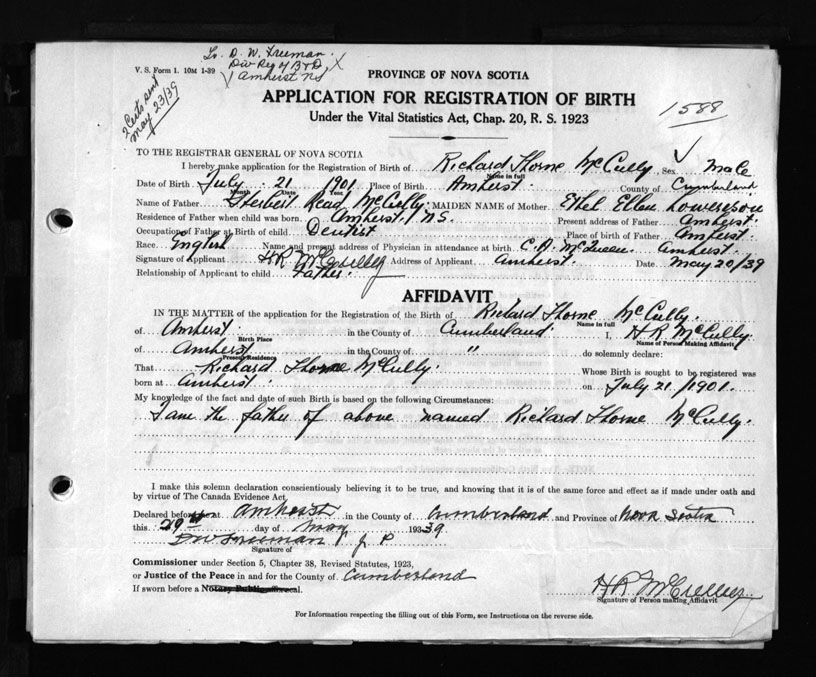 To. D. W. Freeman.
Div Reg of B & D X
V. S. Form 1. 10M 1-39
Amherst NS
PROVINCE OF NOVA SCOTIA
2 Certs sent
May 23/39
APPLICATION FOR REGISTRATION OF BIRTH
1588
Under the Vital Statistics Act, Chap. 20, R. S. 1923
TO THE REGISTRAR GENERAL OF NOVA SCOTIA
I hereby make application for the Registration of Birth of Richard Thorne McCully Sex Male
Name in full
Date of Birth July 21 1901 Place of Birth Amherst County of Cumberland
Month Date Year
Name of Father Herbert Read McCully MAIDEN NAME of Mother Ethel Ellen Lowerison
Residence of Father when child was born Amherst, NS. Present address of Father Amherst
Occupation of Father at Birth of child Dentist Place of birth of Father Amherst
Race English Name and present address of Physician in attendance at birth C. A. McQueen Amherst
Signature of Applicant H R McCulley Address of Applicant Amherst Date May 20/39
Relationship of Applicant to child Father.
AFFIDAVIT
IN THE MATTER of the application for the Registration of the Birth of Richard Thorne McCully.
Name in full
of Amherst in the County of Cumberland I, H R McCully
Birth Place Name of Person Making Affidavit
of Amherst in the County of " do solemnly declare:
Present Residence
That Richard Thorne McCully Whose Birth is sought to be registered was
born at Amherst on July 21/1901.
My knowledge of the fact and date of such Birth is based on the following Circumstances:
I am the father of above named Richard Thorne McCully.
I make this solemn declaration conscientiously believing it to be true, and knowing that it is of the same force and effect as if made under oath and
by virtue of The Canada Evidence Act.
Declared before me at Amherst in the County of Cumberland and Province of Nova Scotia
this 29th day of May 1939
D W Freeman J P
Signature of
Commissioner under Section 5, Chapter 38, Revised Statutes, 1923,
or Justice of the Peace in and for the County of Cumberland
If sworn before a Notary Public affix seal.
H R McCulley
Signature of Person making Affidavit
For Information respecting the filling out of this Form, see Instructions on the reverse side.